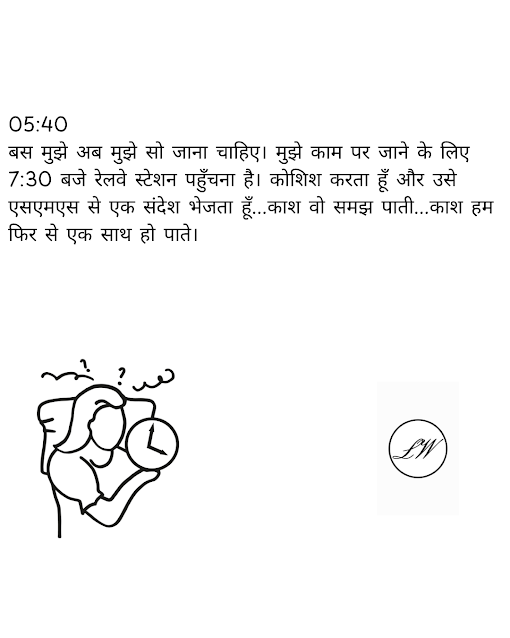 05:40
बस मुझे अब मुझे सो जाना चाहिए। मुझे काम पर जाने के लिए
7:30 बजे रेलवे स्टेशन पहुँचना है। कोशिश करता हूँ और उसे
एसएमएस से एक संदेश भेजता हूँ...काश वो समझ पाती...काश हम
फिर से एक साथ हो पाते।
? ?
LW